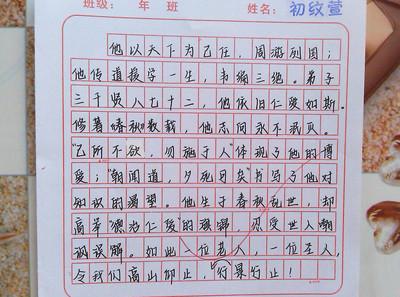 班级： 年 班 姓名：初纹萱
他以天下为己任，周游列国；
他传道授学一生，韦编三绝。弟子
三千贤人七十二，他依旧仁爱如斯。
修著春秋数载，他志向永不泯灭。
“己所不欲，勿施于人”体现了他的博
爱；“朝闻道，夕死可矣”书写了他对
知识的渴望。他生于春秋乱世，却
高举“德治仁爱”的旗帜，忍受世人嘲
讽误解。如此一位老人，一位圣人，
令我们高山仰止，景行行止！